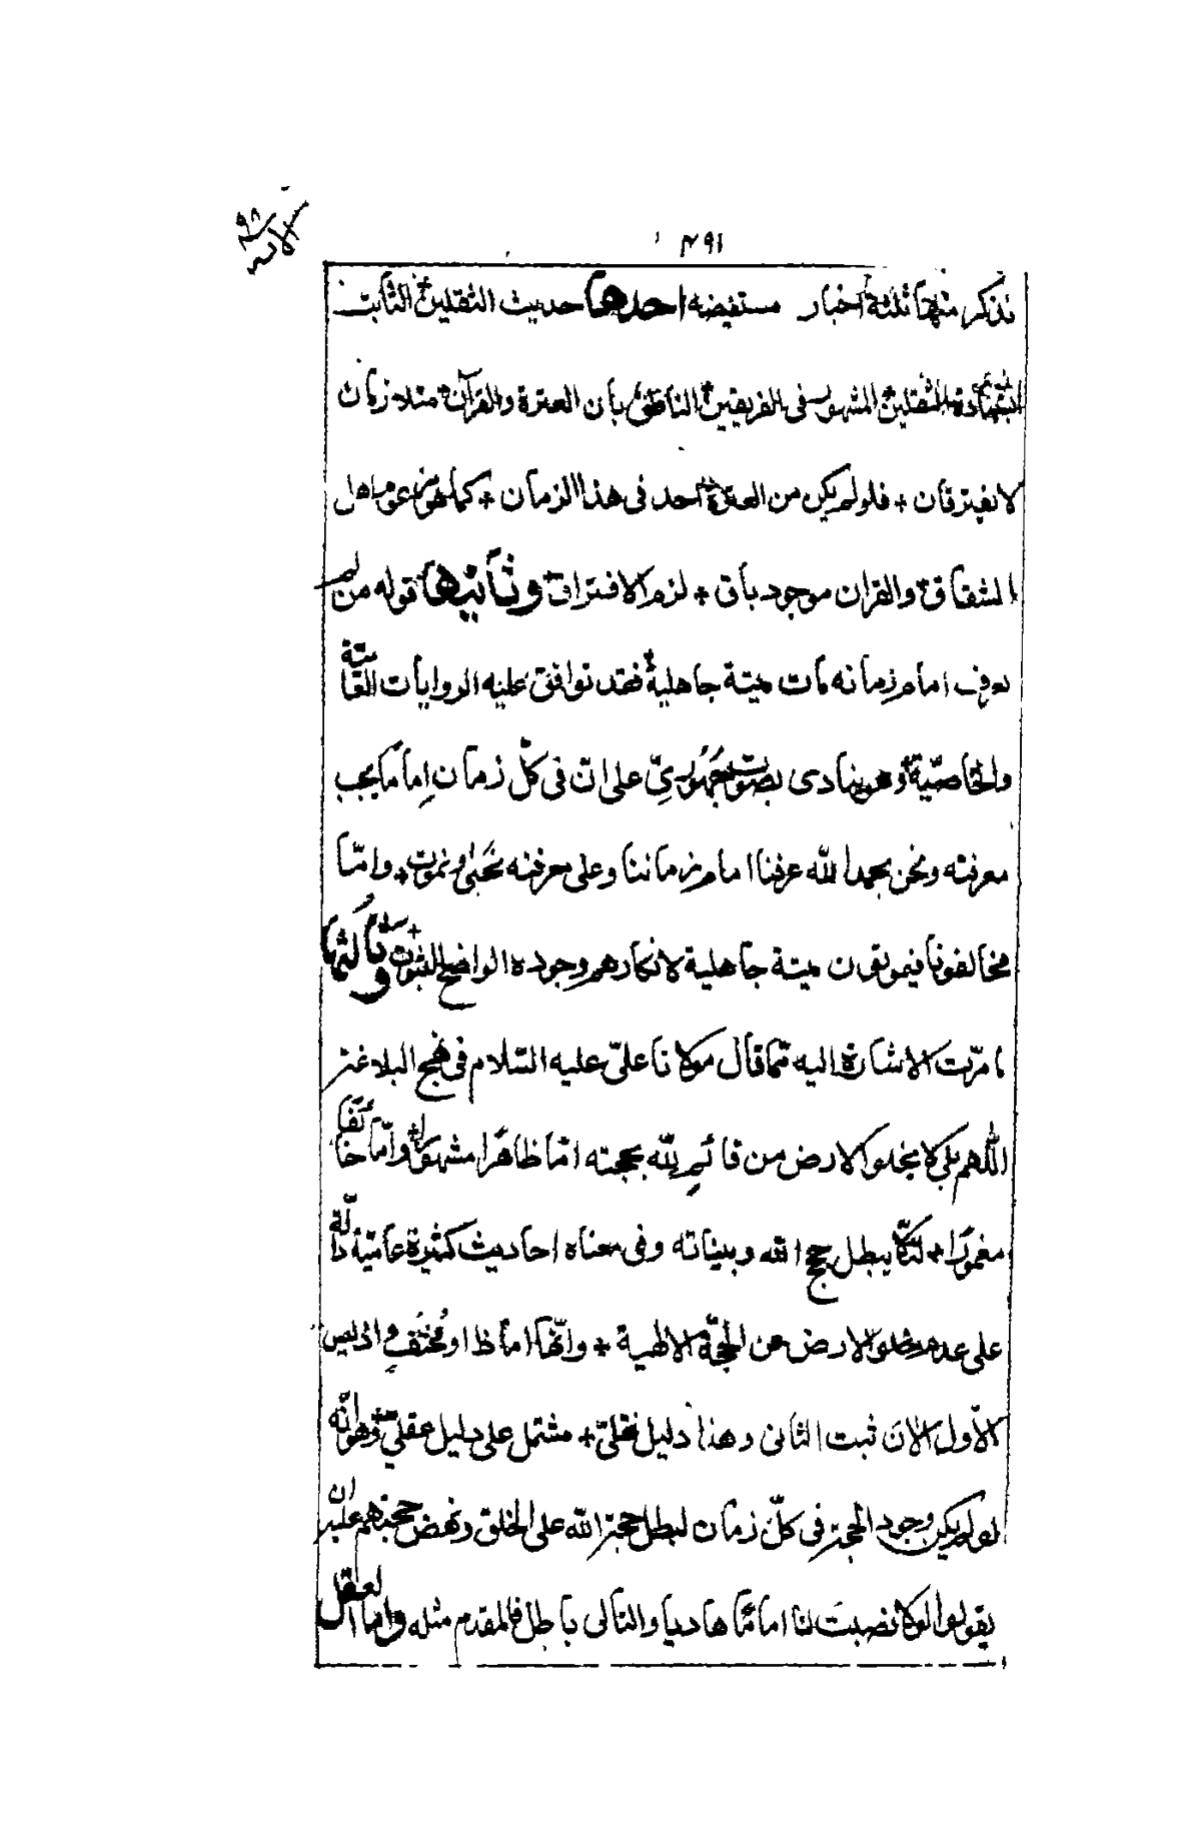 ٤٩١
نذكر منها ثلثة اخبار مستفيضه احدها حديث الثقلين الثابت
بشهادة الثقلين المشهور فى الفريقين الناطق بأن العترة والقرآن متلازمان
لا يفترقان + فلو لم يكن من العترة احد فى هذا الزمان + كما هو مزعوم اهل
الشقاق والقران موجود باق + لزم الافتراق وثانيها قوله من لم
يعرف امام زمانه مات ميتة جاهلية فقد توافق عليه الروايات العامّيّة
والخاصّيّة وهو ينادى بصوت جَهْوَرِيّ على انّ فى كلّ زمان إماما يجب
معرفته ونحن بحمد الله عرفنا امام زماننا وعلى معرفته نحيى ونموت + وامّا
مخالفونا فيموتون ميتة جاهلية لانكارهم وجوده الواضح الثبوت + وثالثها
ما مرّت الاشارة اليه ممّا قال مولانا علىّ عليه السّلام فى نهج البلاغة
اللّهم بلى لا يخلو الارض من قائم لله بحجته امّا ظاهرًا مشهورًا وامّا خائفًا
مغمورًا + لئلّا يبطل حجج الله وبيناته وفى معناه احاديث كثيرة عاميّة دالّة
على عدم خلوّ الارض عن الحجّة الالهية + وانّها اما ظاهر او مُختفٍ واذ ليس
الاوّل الان ثبت الثانى وهذا دليل نقلىّ + مشتمل على دليل عقلىّ وهو انّه
لو لم يكن وجود الحجة فى كلّ زمان لبطل حجة الله على الخلق ونهض حجتهم عليه ان
يقولوا لولا نصبت لنا اماما هاديا والتالى باطل فالمقدم مثله واما العقل